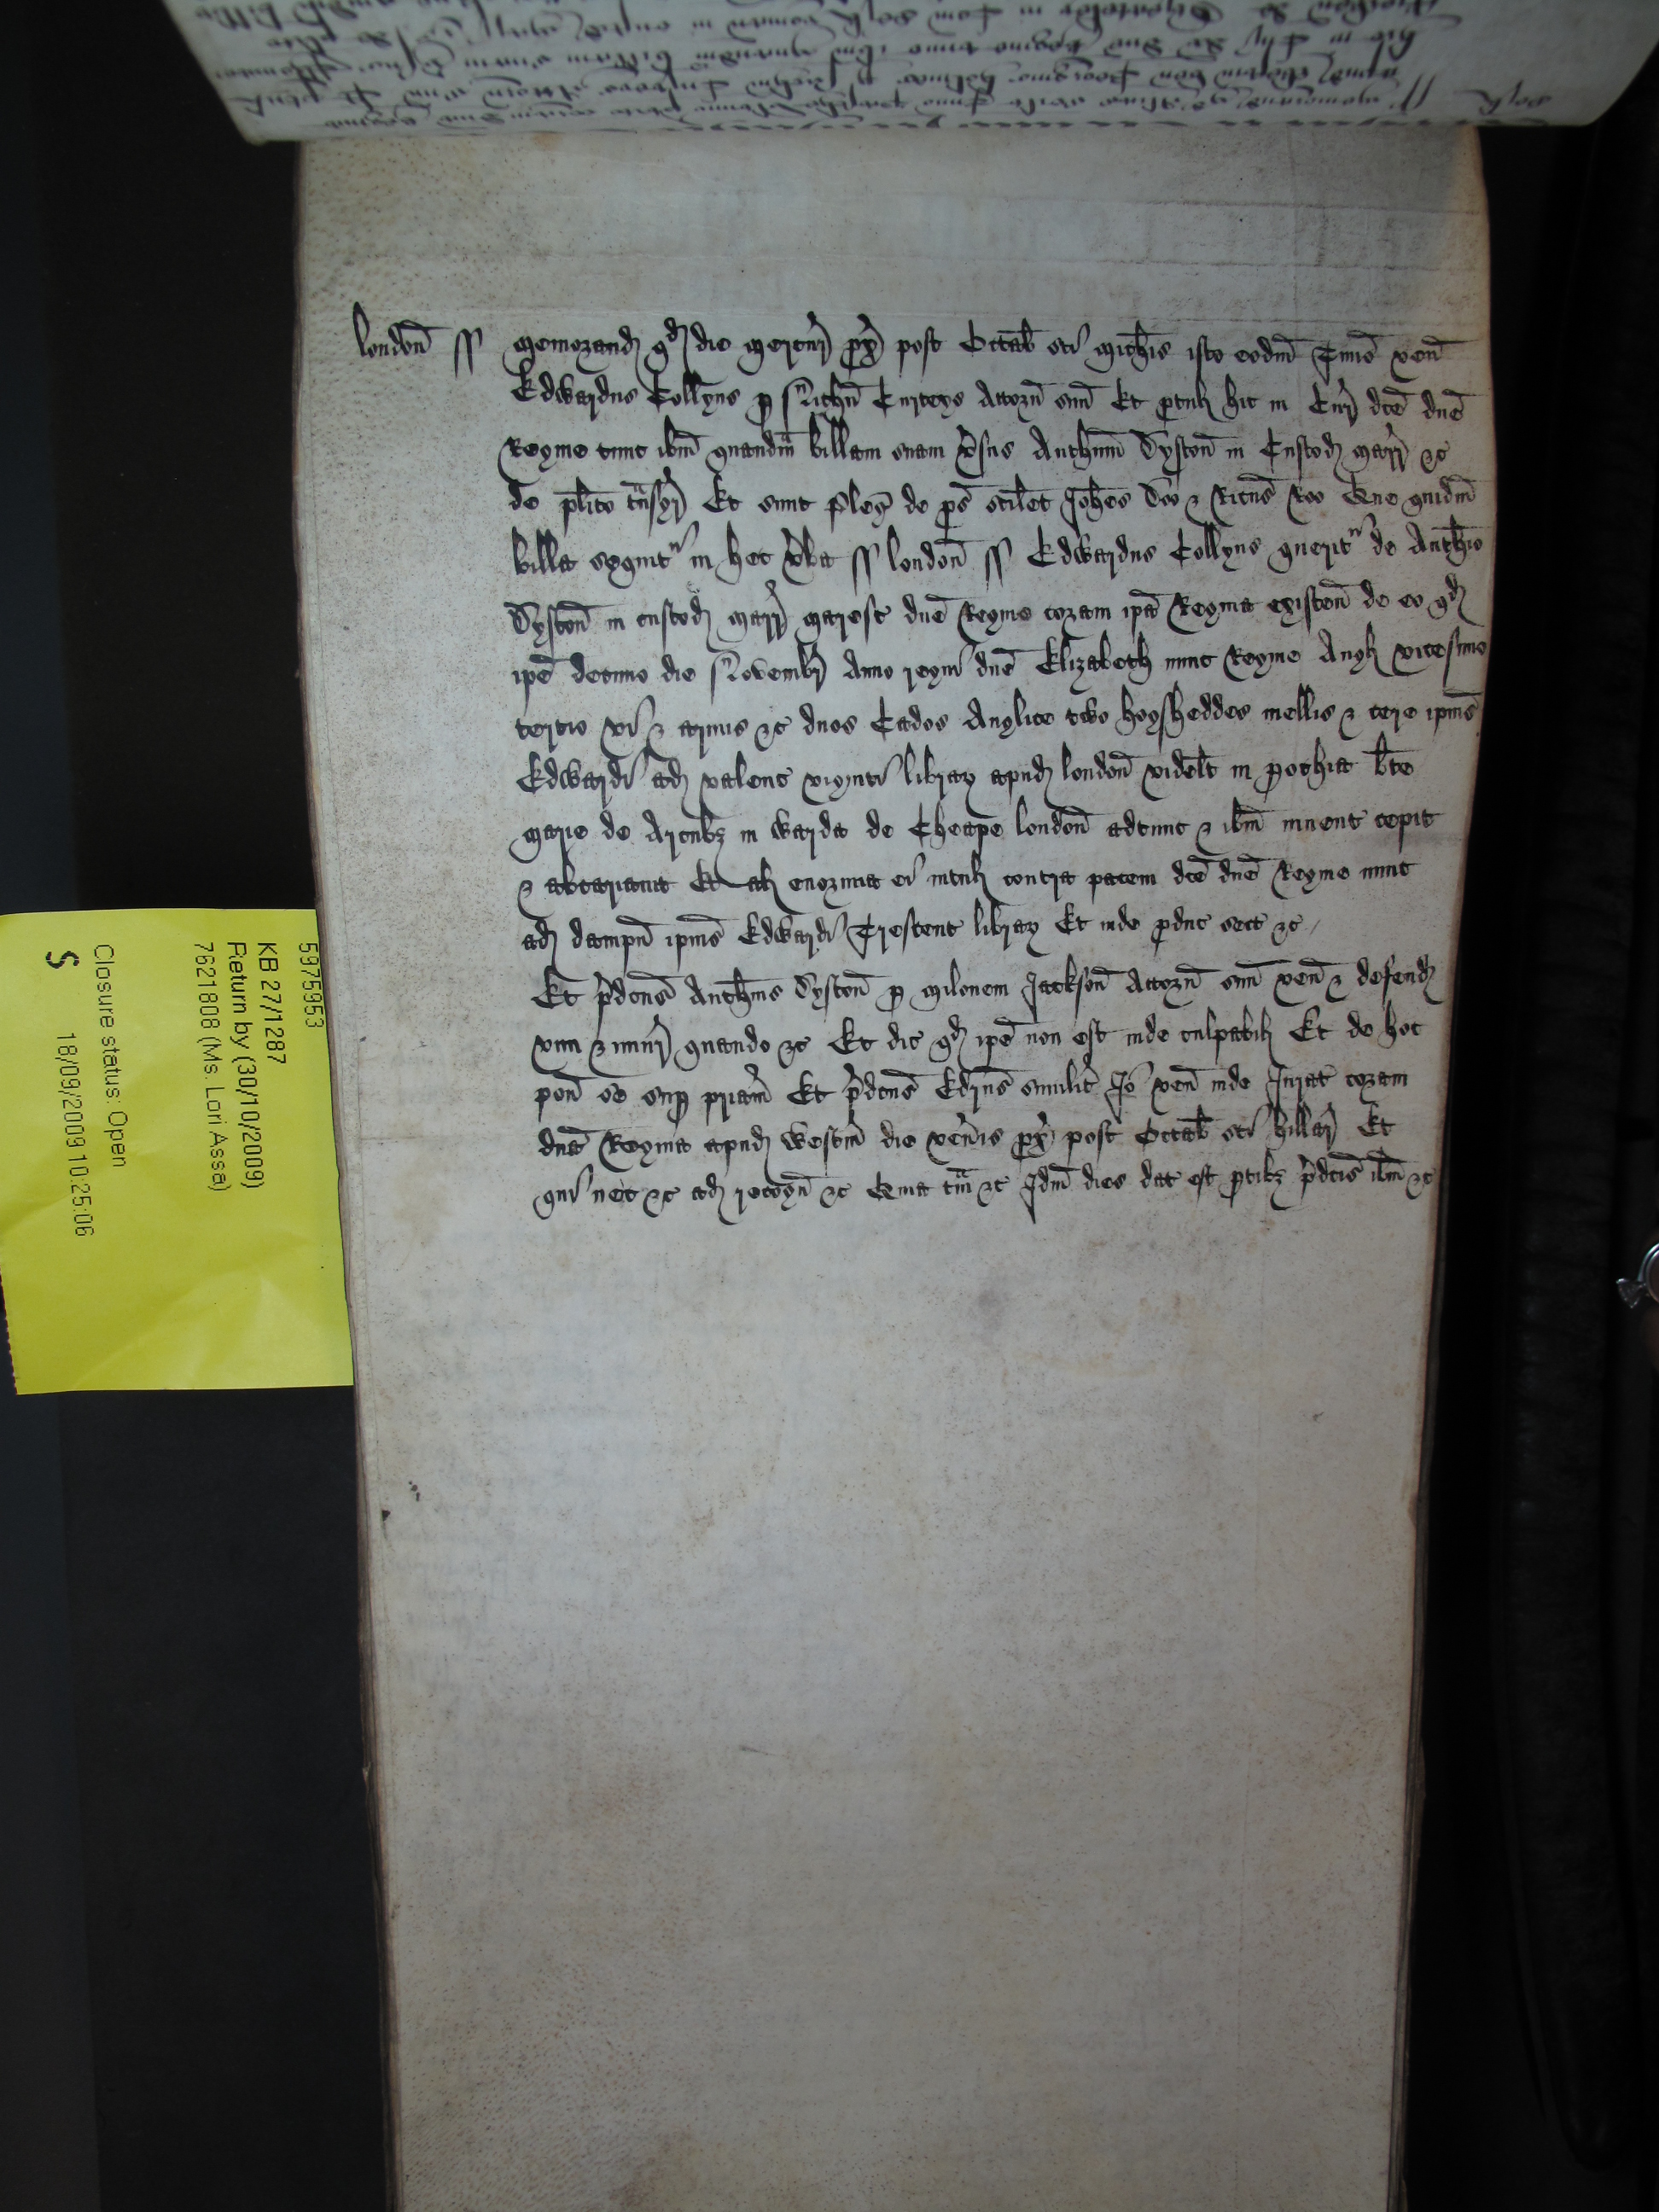 London̄ ss Memorand qd die Mercur̄ px̄ post Octab̄ sc̄i Mich̄is isto eodm̄ T̄mio ven̄
Edwardus Collyns p Nich̄m Curteys Attorn̄ suu̅ Et ptul̄ hic in Cur̄ dc̄e dn̄e
Regine tunc ibm̄ quandm̄ billam suam v̄sus Anthm̄ Dyston̄ in Custod Marr̄ &c
de pl̄ito tn̄sgr̄ Et sunt pleḡ de ps̄ scil̄et Joh̄es Doo & Ricus̄ Roo Que quidm̄
billa sequitr in hec v̄ba ss London̄ ss Edwardus Collyns queritr de Anth̄io
Dyston̄ in custod Marr̄ Maresc̄ dn̄e Regine coram ip̄a Regina existen̄ de eo qd
ip̄e decimo die Novembr̄ Anno regni dn̄e Elizabeth nunc Regine Angl̄ vicesimo
tercio vi & armis &c duos Cados Anglice two hogsheddes mellis & cere ipius̄
Edwardi ad valenc̄ viginti librar̄ apud London̄ videl̄t in pochia b̄te
Marie de Arcubz in Warda de Cheape London̄ adtunc & ibm̄ invent̄ cepit
& abcariavit Et al̄ enormia ei intul̄ contra pacem dc̄e dn̄e Regine nunc
ad dampn̄ ipius̄ Edwardi Trescent̄ librar̄ Et inde pduc̄ sect̄ &c
Et p̄dcus̄ Anth̄ius Dyston̄ p Milonem Jackson̄ Attorn̄ suu̅ ven̄ & defend
vim & iniur̄ quando &c Et dic̄ qd ip̄e non est inde culpabil̄ Et de hoc
pon̄ se sup pr̄iam Et p̄dcus̄ Edrus̄ similit̄ Io ven̄ inde Jurat̄ coram
dn̄a Regina apud Westm̄ die ven̄is px̄ post Octab̄ sc̄i hillar̄ Et
qui nec̄ &c ad recogn̄ &c Quia tm̄ &c Idm̄ dies dat̄ est ptibz p̄dcis̄ ibm̄ &c
5975953
KB 27/1287
Return by (30/10/2009)
7621808 (Ms. Lori Assa)
Closure status: Open
18/09/2009 10:25:06
S